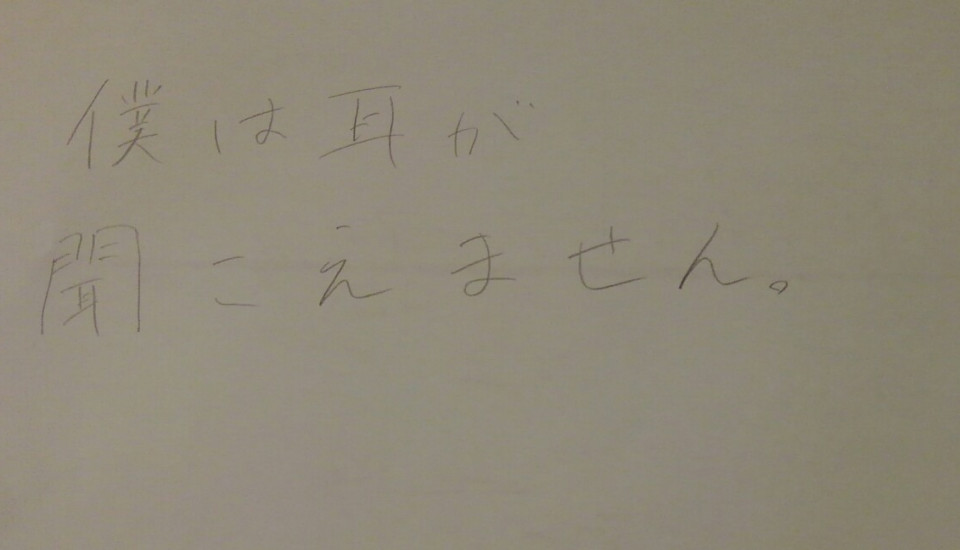 僕は耳が
聞こえません。